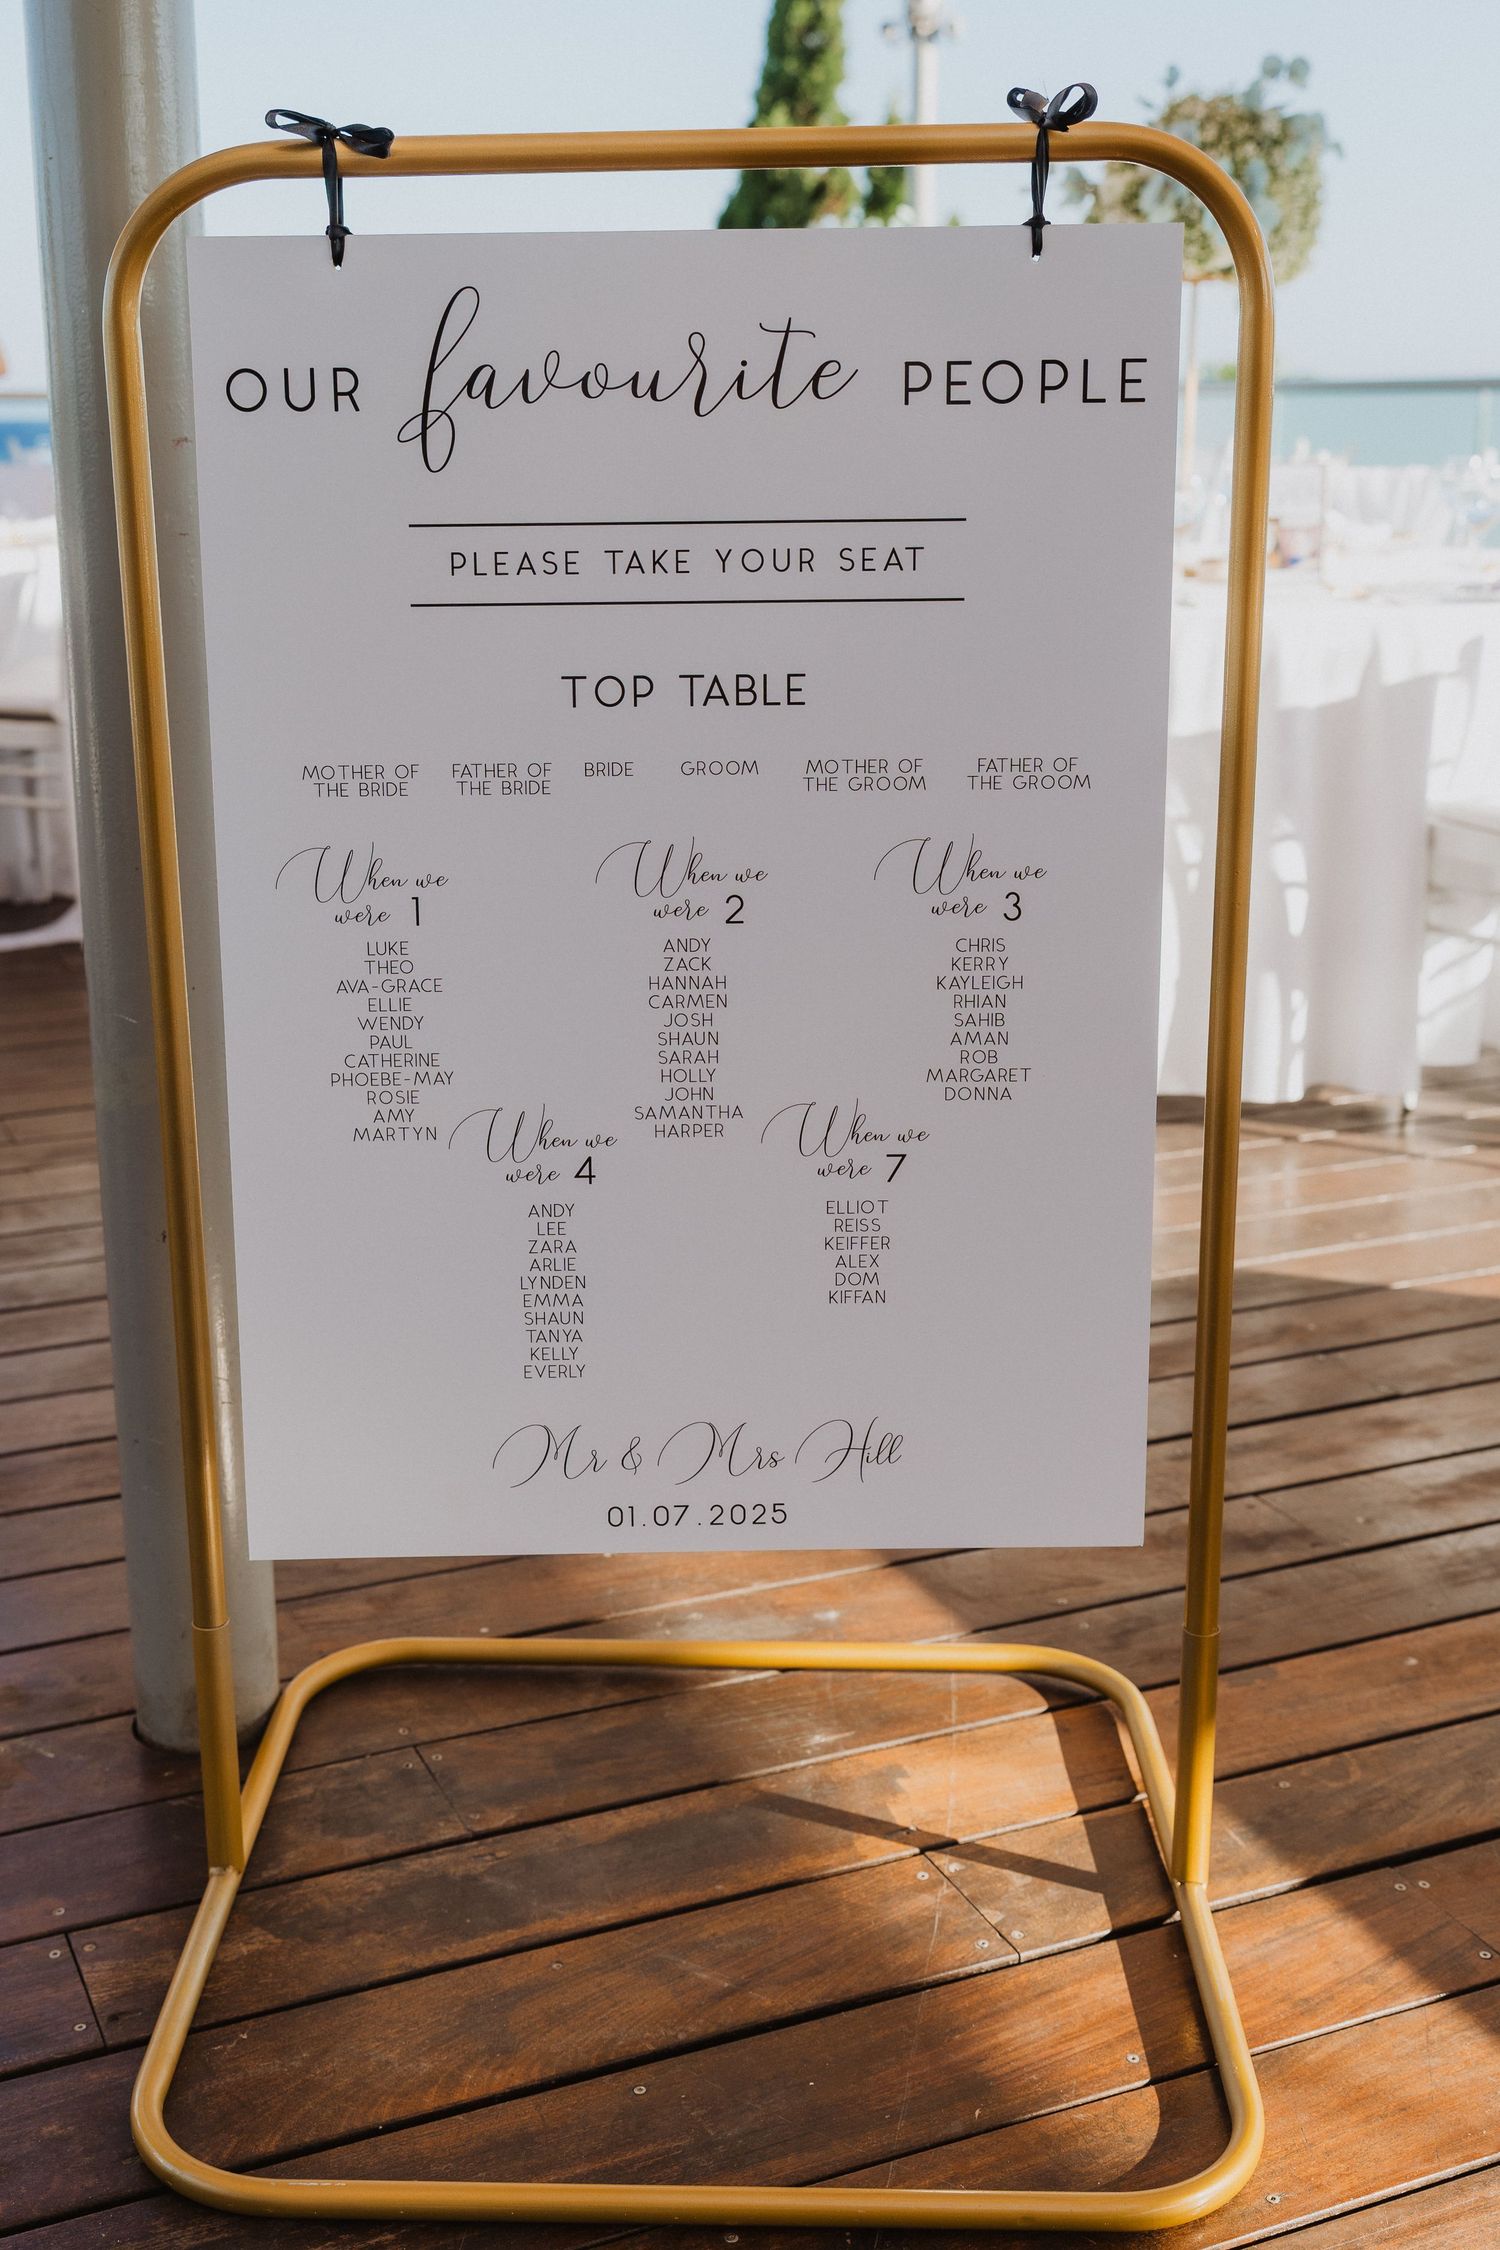 OUR favourite PEOPLE
PLEASE TAKE YOUR SEAT
TOP TABLE
MOTHER OF
THE BRIDE
FATHER OF
THE BRIDE
BRIDE
GROOM
MOTHER OF
THE GROOM
FATHER OF
THE GROOM
When we
were 1
LUKE
THEO
AVA-GRACE
ELLIE
WENDY
PAUL
CATHERINE
PHOEBE-MAY
ROSIE
AMY
MARTYN
When we
were 2
ANDY
ZACK
HANNAH
CARMEN
JOSH
SHAUN
SARAH
HOLLY
JOHN
SAMANTHA
HARPER
When we
were 3
CHRIS
KERRY
KAYLEIGH
RHIAN
SAHIB
AMAN
ROB
MARGARET
DONNA
When we
were 4
ANDY
LEE
ZARA
ARLIE
LYNDEN
EMMA
SHAUN
TANYA
KELLY
EVERLY
When we
were 7
ELLIOT
REISS
KEIFFER
ALEX
DOM
KIFFAN
Mr & Mrs Hill
01.07.2025